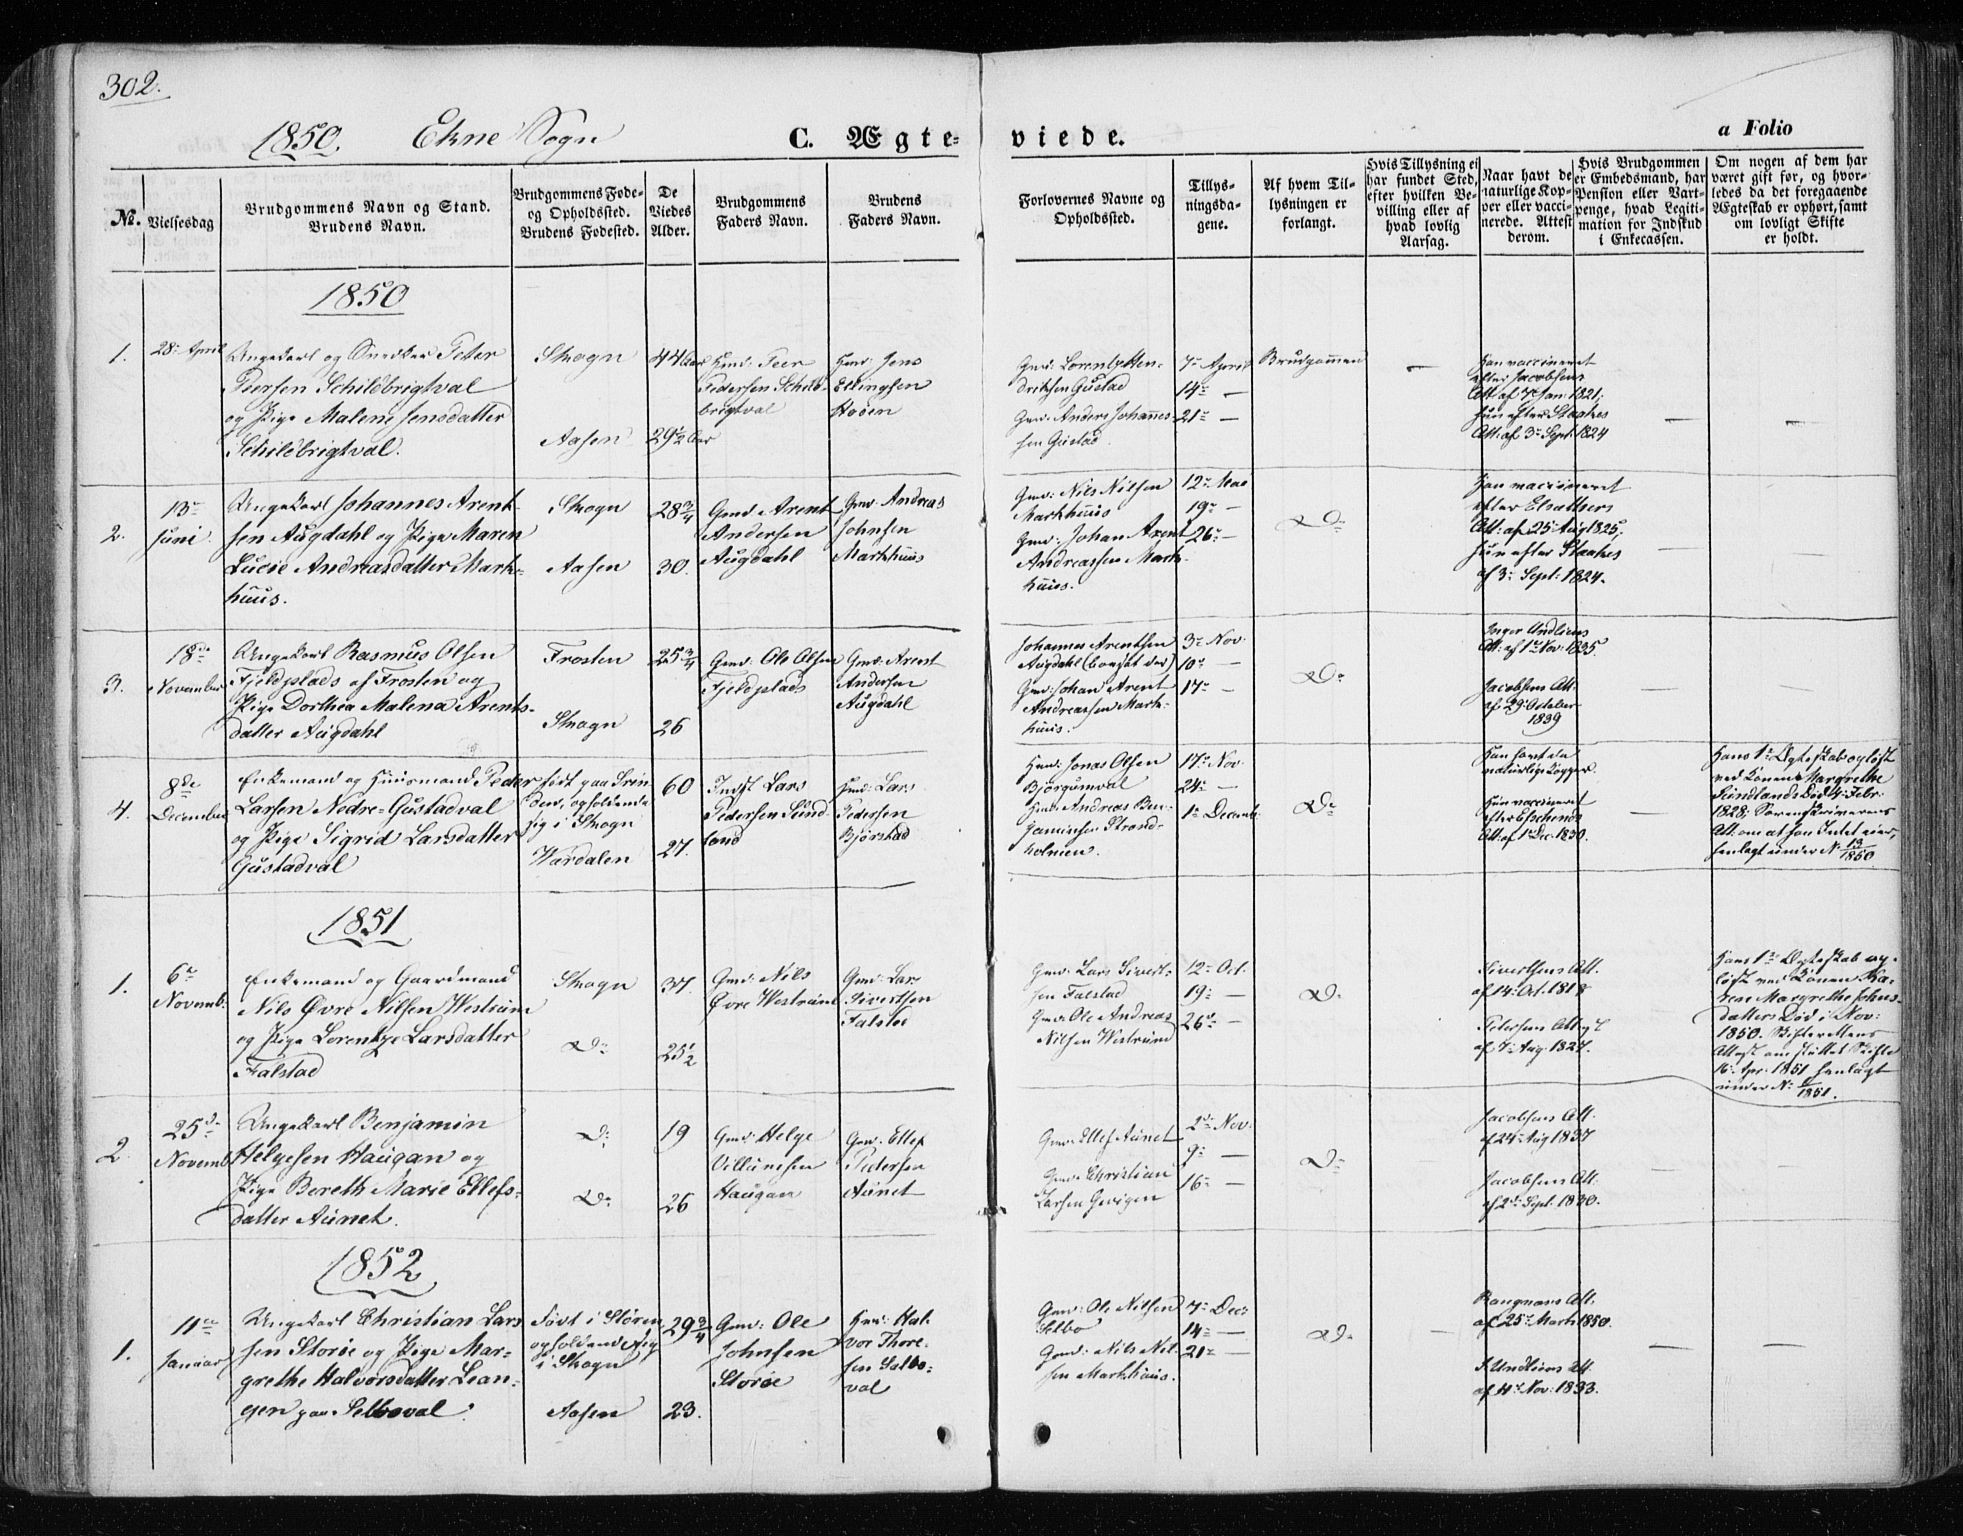 302.
1850. Ekne Sogn C. Ægte- viede. a Folio
No.
Vielsesdag
Brudgommens Navn og Stand.
Brudens Navn.
Brudgommens Føde-
og Opholdssted.
Brudens Fødested.
De
Viedes
Alder.
Brudgommens
Faders Navn.
Brudens
Faders Navn.
Forlovernes Navne og
Opholdssted.
Tillys-
ningsda-
gene.
Af hvem Til-
lysningen er
forlangt.
Hvis Tillysning ei
har fundet Sted,
efter hvilken Be-
villing eller af
hvad lovlig
Aarsag.
Naar havt de
naturlige Kop-
per eller vacci-
nerede. Attest
derom.
Hvis Brudgommen
er Embedsmand, har
Pension eller Vart-
penge, hvad Legiti-
mation for Indskud
i Enkecassen.
Om nogen af dem har
været gift før, og hvor-
ledes da det foregaaende
Ægteskab er ophørt, samt
om lovligt Skifte
er holdt.
1850
1.
28de April
Ungekarl og Snedker Peter
Peersen Schilbrigtval
og Pige Malene Jensdatter
Schilbrigtval.
Skogn
Aasen
44 Aar
29½ Aar
Gmd: Peer
Pedersen Schil-
brigtval
Gmd: Jens
Ellingsen
Hoøen
Gmd: Lorents Hen-
driksen Gustad
Gmd: Anders Johannes-
sen Gustad.
7de April
14de —
21de —
Brudgommen
—
Han vaccineret
efter Jacobsens
Att. af 7de Jan: 1821;
hun efter Staakes
Att: af 3de Sept: 1824
—
—
2.
13de
Juni.
Ungekarl Johannes Arent-
sen Augdahl og Pige Maren
Lucie Andreasdatter Mark-
huus.
Skogn
Aasen
28¾
30.
Gmd Arent
Andersen
Augdahl
Gmd: Andreas
Johnsen
Markhuus
Gmd: Nils Nilsen
Markhuus
Gmd: Johan Arent
Andreassen Mark-
huus.
12te Mai
19de —
26de —
Do
Han vaccineret
efter
Att: af 25de Aug 1825,
hun efter Staakes
af 3de Sept: 1824.
—
—
3.
18de
November
Ungekarl Rasmus Olsen
Fjeldplads af Frosten og
Pige Dorthea Malena Arents-
datter Augdahl
Frosten
Skogn
25¾
26
Gmd: Ole Olsen
Fjeldplads
Gmd: Arent
Andersen
Augdahl
Johannes Arentsen
Augdahl
Gmd: Johan Arent
Andreassen Mark-
huus.
3de Nov.
10de —
17de —
Do
Inger Undliens
Att: af 1ste Nov: 1825
Jacobsens Att:
af 29de October
1839
—
—
4.
8de
December
Enkemand og Huusmand Peder
Larsen Nedre-Gustadval
og Pige Sigrid Larsdatter
Gustadval
født paa Srin-
den, opholdende
sig i Skogn
Værdalen
60
27.
Indst Lars
Pedersen Sund-
land
Gmd: Lars
Pedersen
Bjørstad
Hmd: Jonas Olsen
Bjørgumval
Hmd: Andreas Ben-
jaminsen Strand-
kolnien.
17de Nov.
24de —
1ste Decemb:
Do
Han havt de
naturlige Kopper.
Hun vaccineret
efter
Att: af 1ste Dec: 1830.
—
Hans 1ste Ægteskab opløst
ved Konen Margrethe
Sundlands Død 4 Febr:
1828; Sorenskriverens
Att. om at han Intet eier,
henlagt under No 13/1850
1851
1.
6te
Novemb:
Enkemand og Gaardmand
Nils Øvre Nilsen Westrum
og Pige Lorentze Larsdatter
Falstad
Skogn
Do
37.
25½
Gmd: Nils
Øvre Westrum
Gmd: Lars
Sivertsen
Falstad
Gmd: Lars Sivert-
sen Falstad
Gmd: Ole Andreas
Nilsen Westrum
12te Oct.
19de —
26de —
Do
Sivertsens Att.
af 14 Oct. 1818
Petersens Att:
af 7de Aug: 1827.
Hans 1ste Ægteskab op-
løst ved Konen Ka-
rene Margrethe Johns-
datters Død i Nov:
1850. Skifterettens
Attest om sluttet Skifte
16 Apr: 1851 henlagt
under No /1851.
2
25de
Novemb:
Ungekarl Benjamin
Helgesen Haugan og
Pige Bereth Marie Ellefs-
datter Aunet.
Do
Do
19
26
Gmd: Helge
Villumsen
Haugan
Gmd: Ellef
Pedersen
Aunet
Gmd: Ellef Aunet
Gmd: Christian
Larsen
2de Nov:
9de —
16de —
Do
Jacobsens Att.
af 24de Aug 1837
Jacobsens Att.
af 2de Sept: 1830.
—
—
1852
1.
11te
Januar
Ungekarl Christian Lars-
sen Storøe og Pige Mar-
grethe Halvorsdatter Lean-
gen paa Selboval.
Født i Støren
opholdende sig
i Skogn
Aasen
29¾
23.
Gmd: Ole
Johnsen
Storøe
Hmd: Hal-
vor Thore-
sen Selbo-
val
Gmd: Ole Nilsen
Selbo
Gmd: Nils Nil-
sen Markhuus.
7de Dec:
14de —
21de —
Do
—
Att.
af 25de Marts 1850.
Undliens Att.
af 4de Nov: 1833.
—
—